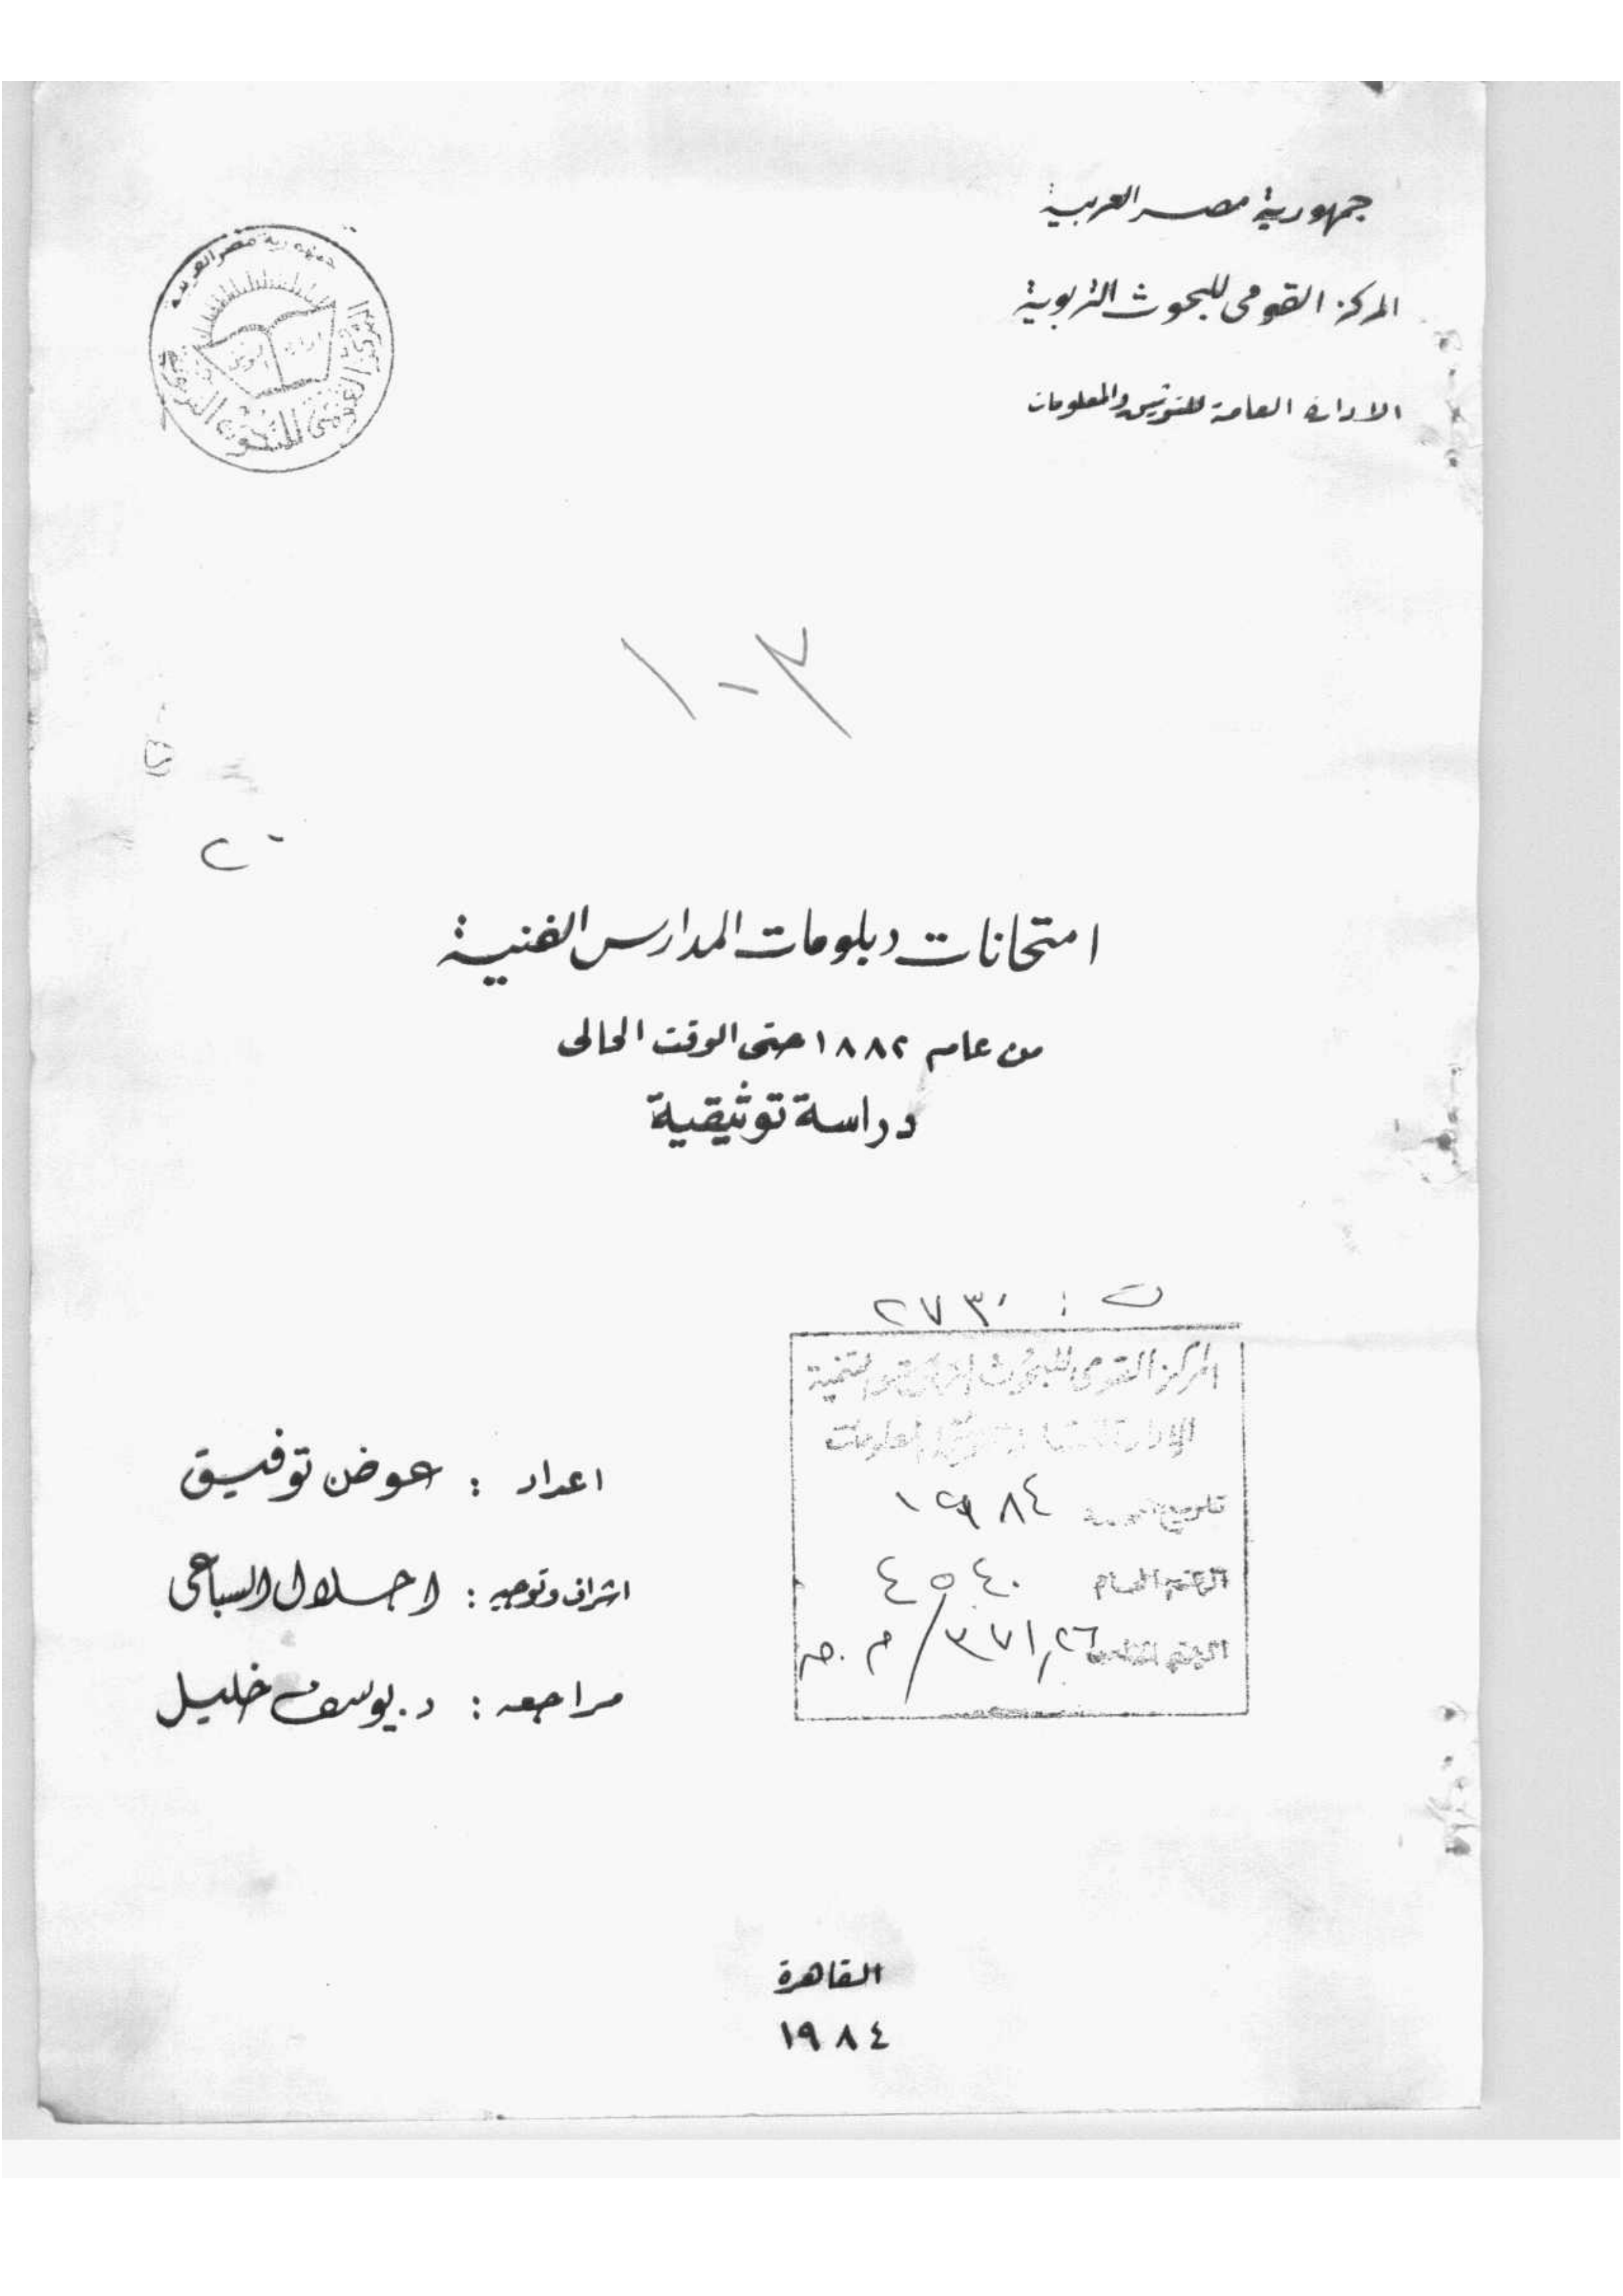 جمهورية مصر العربية
المركز القومى للبحوث التربوية
الادارة العامة للتوثيق والمعلومات
جمهورية مصر العربية
المركز القومى للبحوث التربوية
٣-١
امتحانات دبلومات المدارس الفنية
من عام ١٨٨٢ حتى الوقت الحالى
دراسة توثيقية
ت : ٢٧٣٠
المركز القومى للبحوث التربوية والتنمية
الإدارة العامة للتوثيق والمعلومات
١٩٨٤
الرقم العام ٤٥٤٠
الرقم الخاص ٣٧١,٢٦ / م.ص
اعداد : عوض توفيق
اشراف وتوجيه : اجلال السباعى
مراجعه : د. يوسف خليل
القاهرة
١٩٨٤